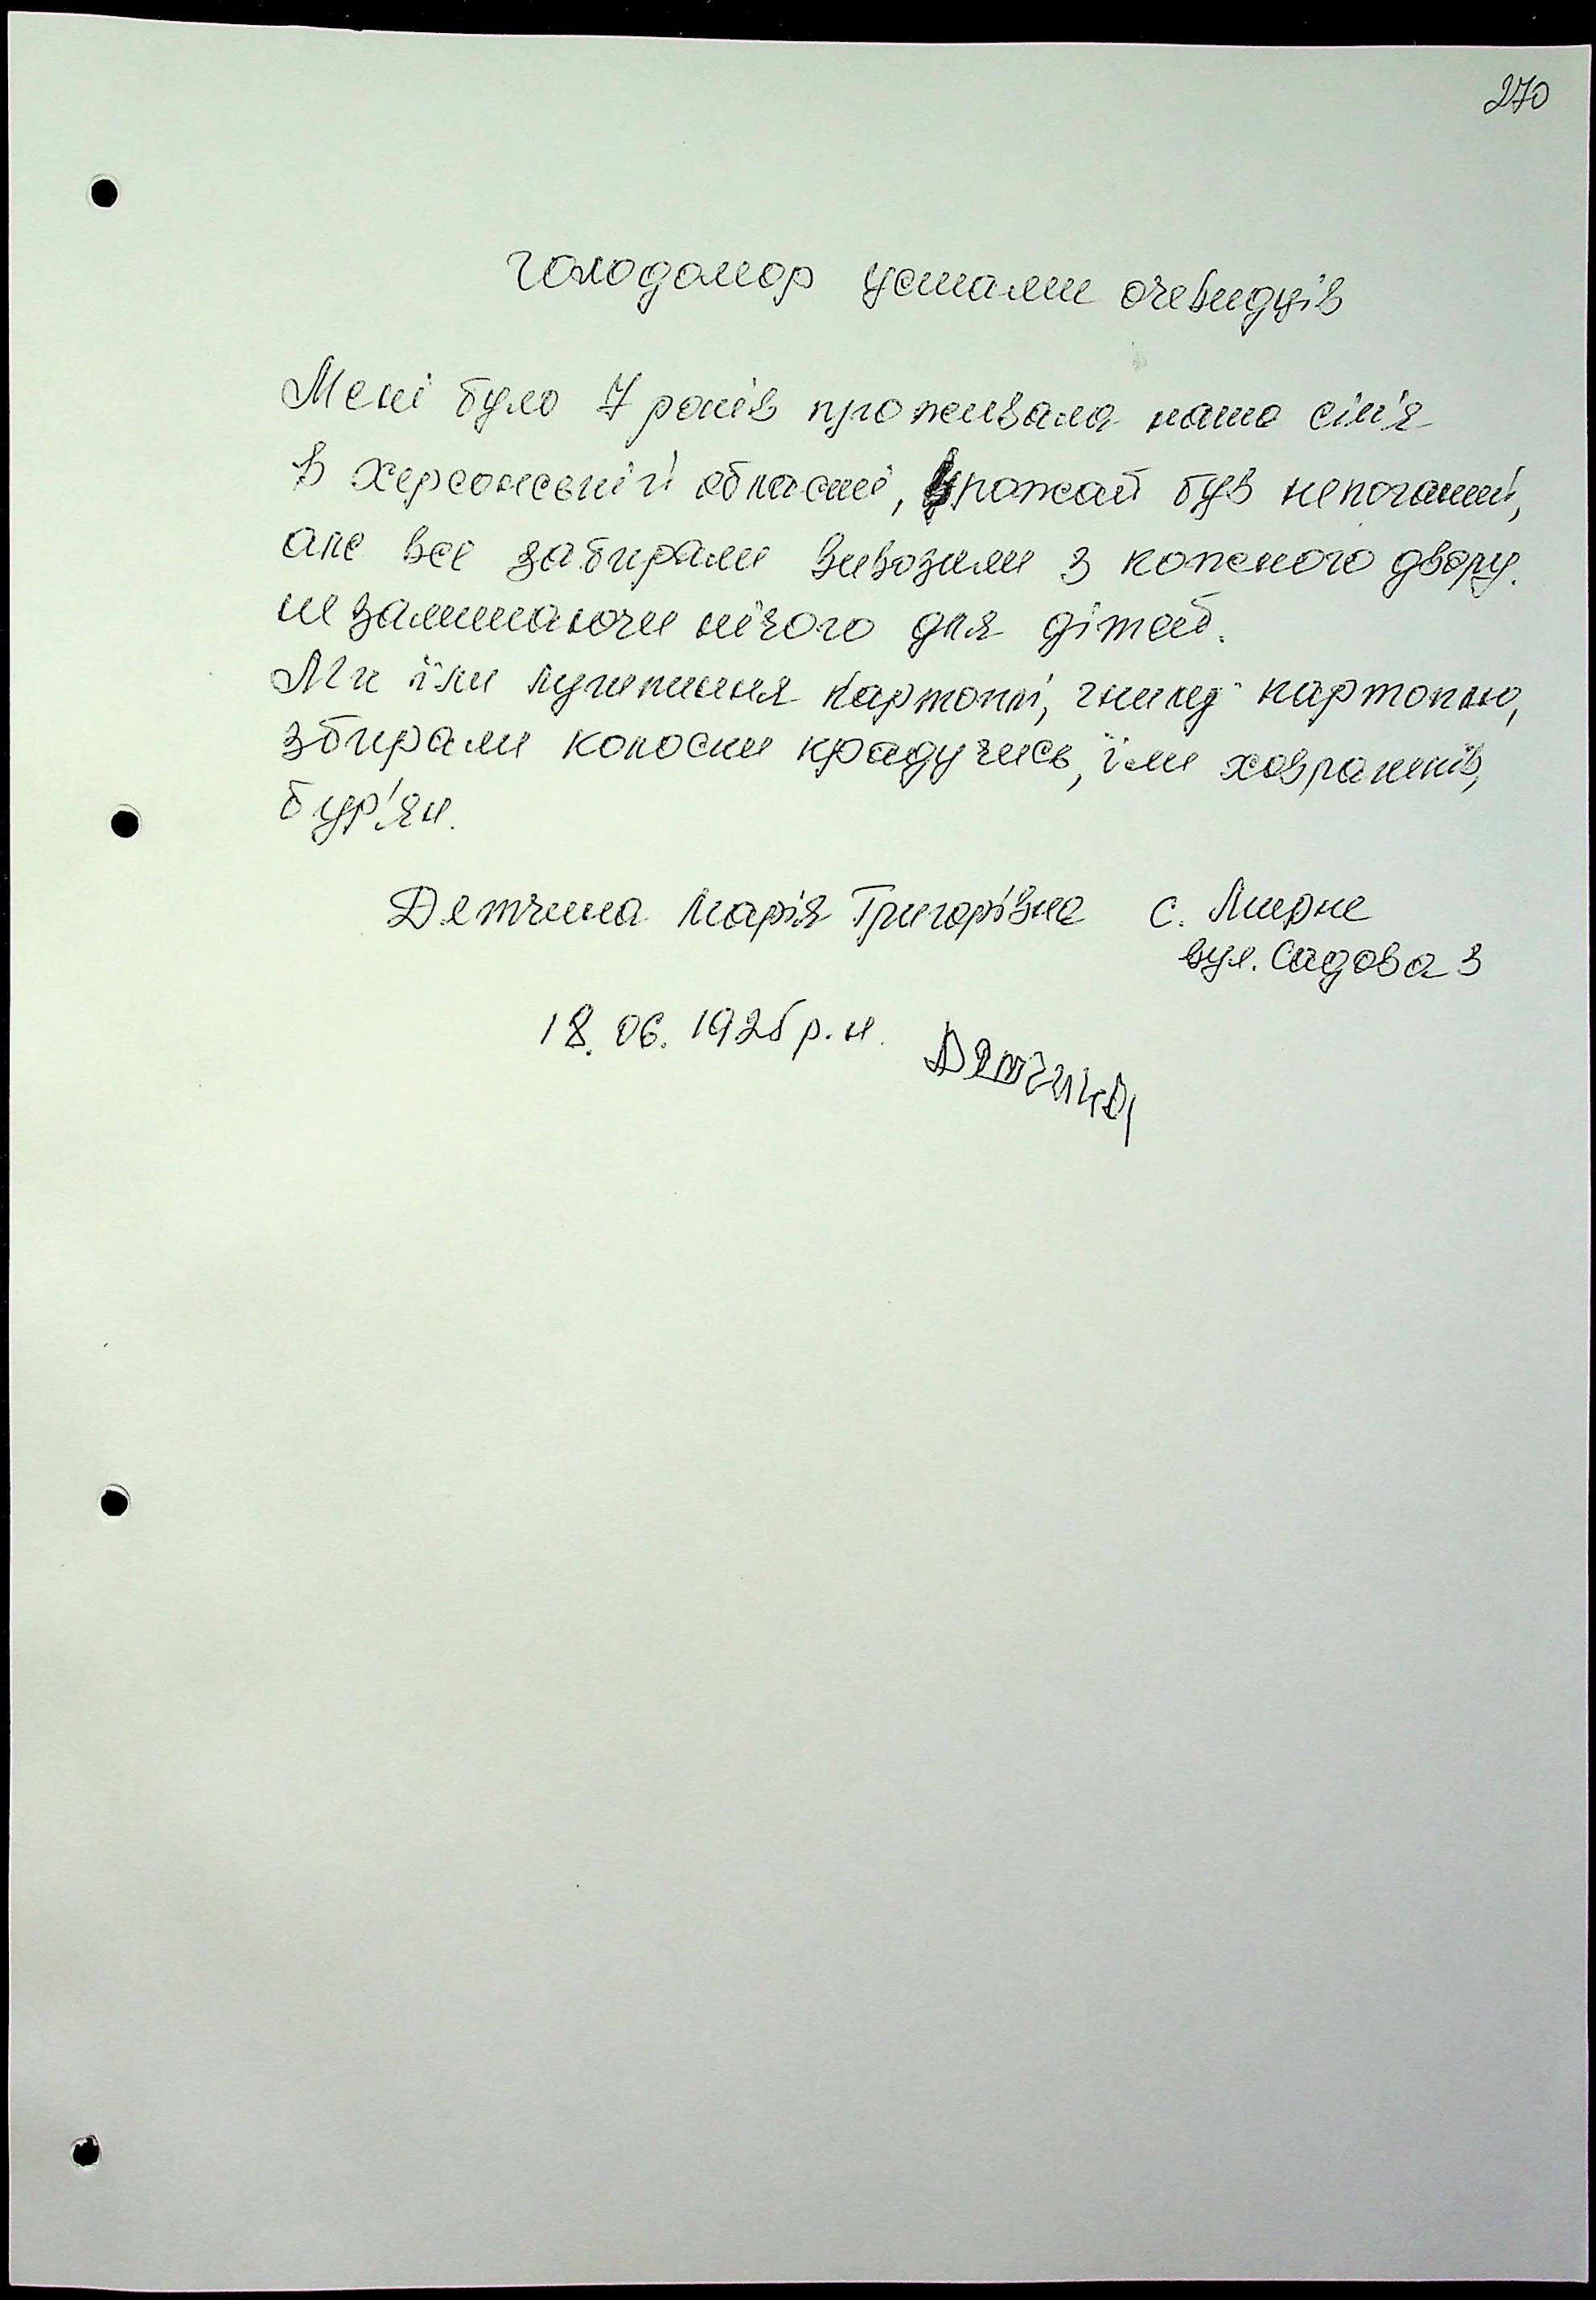 270
Голодомор устами очевидців
Мені було 7 років проживала наша сім'я
в Херсонській області, урожай був непоганий,
але все забирали вивозили з кожного двору.
не залишаючи нічого для дітей.
Ми їли лушпиння картоплі, гнилу картоплю,
збирали колоски крадучись, їли ховрашків,
бур'ян.
Детчина Марія Григорівна с. Мирне
вул. Садова 3
18. 06. 1925 р. н.